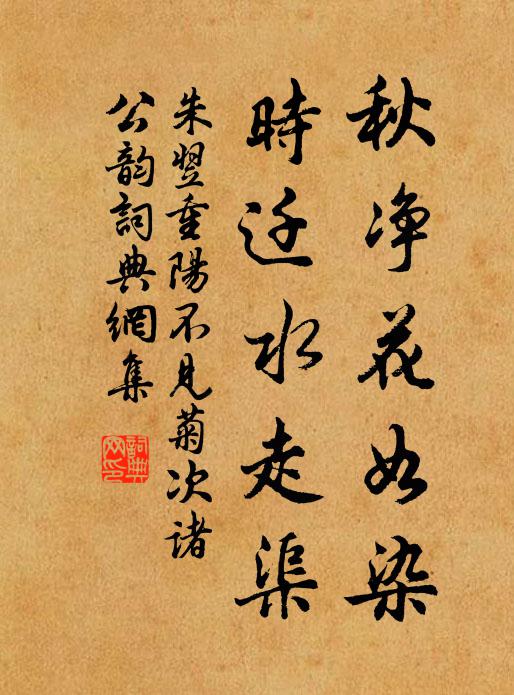 秋净花如染
時迁水走渠
朱翌重陽不見菊次諸
公韵詞典網集
詞典网印